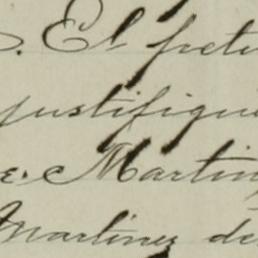 . El peti
justifiqu
e. Martin
Martinez de